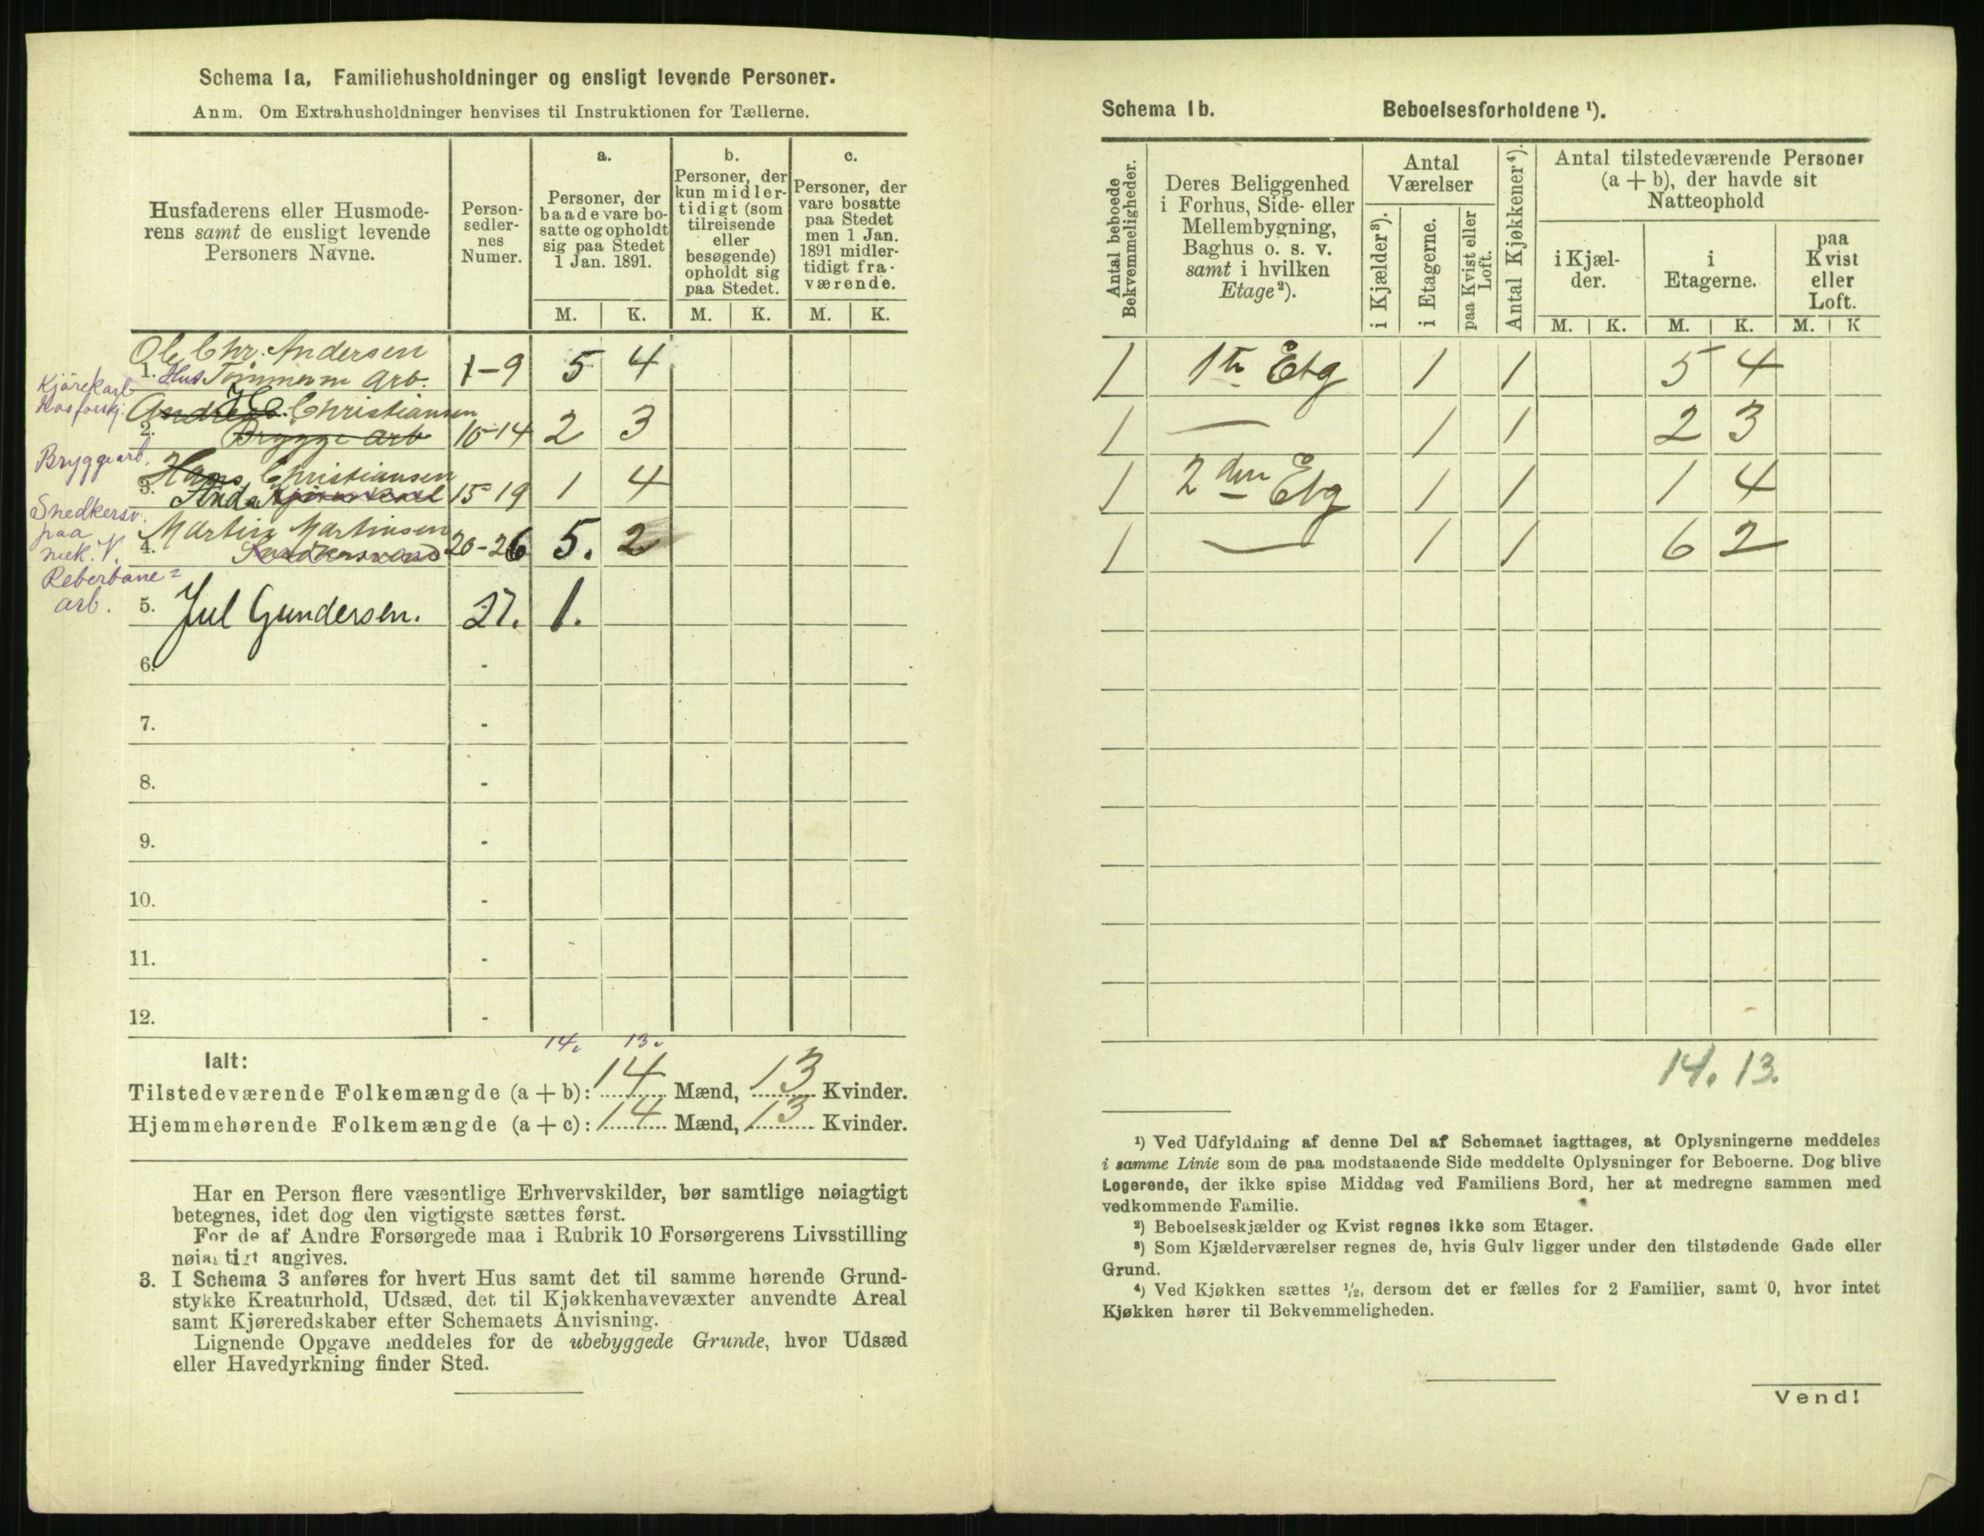 Schema 1a. Familiehusholdninger og ensligt levende Personer.
Anm. Om Extrahusholdninger henvises til Instruktionen for Tællerne.
Husfaderens eller Husmode-
rens samt de ensligt levende
Personers Navne.
Person-
sedler-
nes
Numer.
a.
Personer, der
baade vare bo-
satte og opholdt
sig paa Stedet
1 Jan. 1891.
b.
Personer, der
kun midler-
tidigt (som
tilreisende
eller
besøgende)
opholdt sig
paa Stedet.
c.
Personer, der
vare bosatte
paa Stedet
men 1 Jan.
1891 midler-
tidigt fra-
værende.
M. K. M. K. M. K.
Ole Chr. Andersen
1. Hus Tømmerm Arb. 1-9 5 4
Kjørekarl
Christiansen
2. Brygge arb 10-14 2 3
Bryggearb.
Hans Christiansen
3. 15-19 1 4
Snedkersv.
paa
mek. V.
Martin Martinsen
4. Snedkersvend 20-26 5. 2
Reberbane=
arb.
5. Jul Gundersen. 27. 1.
6. -
7. -
8. -
9. -
10. -
11. -
12. -
14. 13.
Ialt:
Tilstedeværende Folkemængde (a + b): 14 Mænd, 13 Kvinder.
Hjemmehørende Folkemængde (a + c): 14 Mænd, 13 Kvinder.
Har en Person flere væsentlige Erhvervskilder, bør samtlige nøiagtigt
betegnes, idet dog den vigtigste sættes først.
For de af Andre Forsørgede maa i Rubrik 10 Forsørgerens Livsstilling
nøiagtigt angives.
3. I Schema 3 anføres for hvert Hus samt det til samme hørende Grund-
stykke Kreaturhold, Udsæd, det til Kjøkkenhavevæxter anvendte Areal
samt Kjøreredskaber efter Schemaets Anvisning.
Lignende Opgave meddeles for de ubebyggede Grunde, hvor Udsæd
eller Havedyrkning finder Sted.
Schema 1b. Beboelsesforholdene ¹).
Antal beboede
Bekvemmeligheder.
Deres Beliggenhed
i Forhus, Side- eller
Mellembygning,
Baghus o. s. v.
samt i hvilken
Etage²).
Antal
Værelser
i Kjælder³).
i Etagerne.
paa Kvist eller
Loft.
Antal Kjøkkener⁴).
Antal tilstedeværende Personer
(a + b), der havde sit
Natteophold
i Kjæl-
der.
i
Etagerne.
paa
Kvist
eller
Loft.
M. K. M. K. M. K
1 1te Etg 1 1 5 4
1 — 1 1 2 3
1 2den Etg 1 1 1 4
1 — 1 1 6 2
14. 13.
¹) Ved Udfyldning af denne Del af Schemaet iagttages, at Oplysningerne meddeles
i samme Linie som de paa modstaaende Side meddelte Oplysninger for Beboerne. Dog blive
Logerende, der ikke spise Middag ved Familiens Bord, her at medregne sammen med
vedkommende Familie.
²) Beboelseskjælder og Kvist regnes ikke som Etager.
³) Som Kjælderværelser regnes de, hvis Gulv ligger under den tilstødende Gade eller
Grund.
⁴) Ved Kjøkken sættes ½, dersom det er fælles for 2 Familier, samt 0, hvor intet
Kjøkken hører til Bekvemmeligheden.
Vend!